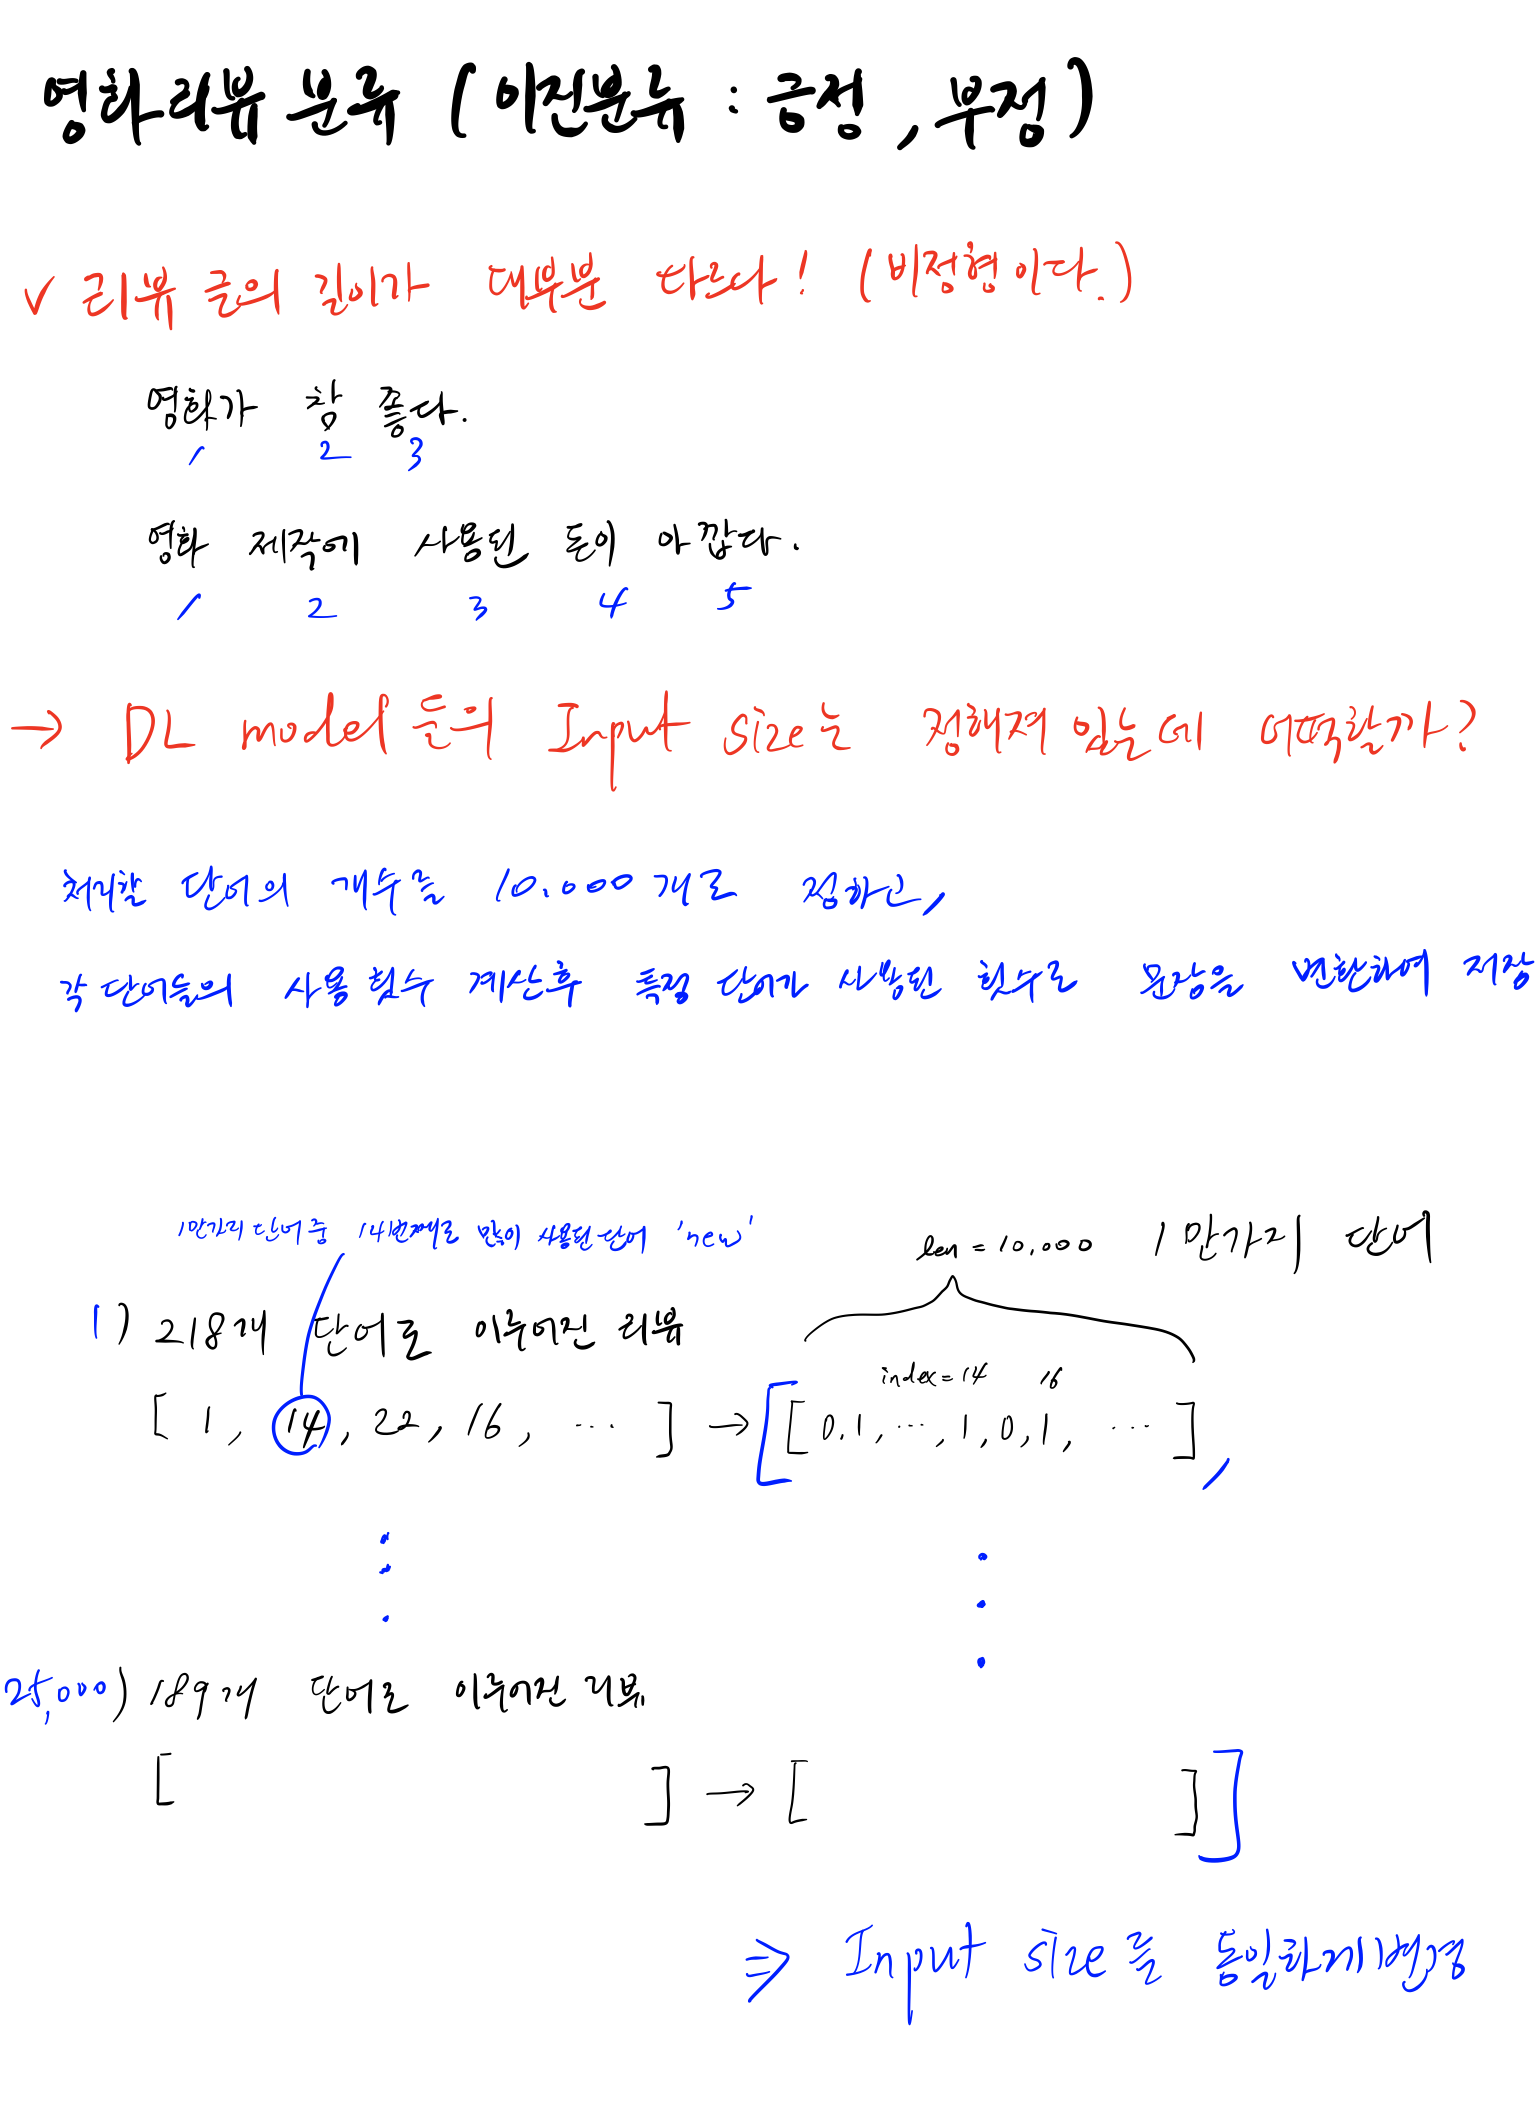 영화리뷰 분류 ( 이진분류 : 긍정 , 부정 )
✓ 리뷰 글의 길이가 대부분 다르다! (비정형이다.)
영화가 참 좋다.
1 2 3
영화 제작에 사용된 돈이 아깝다.
1 2 3 4 5
→ DL model들의 Input size는 정해져 있는데 어떡할까?
처리할 단어의 개수를 10.000개로 정하고,
각 단어들의 사용 횟수 계산후 특정 단어가 사용된 횟수로 문장을 변환하여 저장
1만가지 단어 중 14번째로 많이 사용된 단어 'new'
len = 10,000 1만가지 단어
1) 218개 단어로 이루어진 리뷰
index = 14 16
[ 1, 14, 22, 16, ... ] → [[ 0.1, ..., 1, 0, 1, ... ],
25,000) 189개 단어로 이루어진 리뷰
[ ] → [ ]]
⇒ Input size를 동일하게 변경